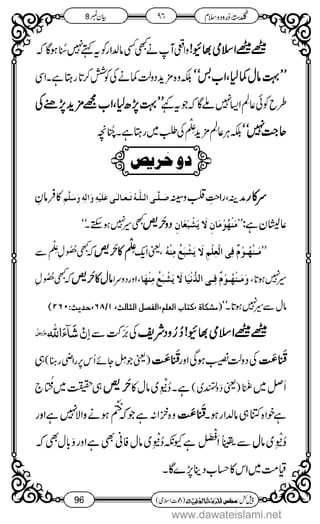 گلدستۂ درود و سلام ٩٦ بیان نمبر 8
میٹھے میٹھے اسلامی بھائیو! واقعی آپ نے کبھی کسی مالدار کو یہ کہتے نہیں سُنا ہوگا کہ
’’بہت مال کمالیا، اب بس‘‘ بلکہ وہ مزید دولت کمانے کی کوشش کرتا رہتا ہے۔ اسی
طرح کوئی عالم ایسا نہیں ملے گا کہ جو یہ کہے ’’بہت پڑھ لیا، اب مجھے مزید پڑھنے کی
حاجت نہیں‘‘ بلکہ ہر عالم مزید علم کی طلب میں رہتا ہے۔ چُنانچہ
دو حَرِیص
سرکارِ مدینہ، راحتِ قلب و سینہ صَلَّی اللّٰہُ تَعَالٰی عَلَیْہِ وَاٰلِہٖ وَسَلَّم کا فرمانِ
عالیشان ہے: ’’مَنْھُوْمَانِ لَا یَشْبَعَانِ دو حریص کبھی سیر نہیں ہوسکتے۔‘‘
’’مَنْھُوْمٌ فِی الْعِلْمِ لَا یَشْبَعُ مِنْہُ، یعنی ایک علم کا حریص کہ کبھی حُصُولِ علم سے
سیر نہیں ہوتا، وَمَنْھُوْمٌ فِی الدُّنْیَا لَا یَشْبَعُ مِنْھَا، اور دوسرا مال کا حریص کہ کبھی حُصُولِ
مال سے سیر نہیں ہوتا۔‘‘ (مشکاة ، کتاب العلم، الفصل الثالث، ٦٨/١، حدیث: ٢٦٠)
میٹھے میٹھے اسلامی بھائیو! دُرُود شریف کی برکت سے اِنْ شَآءَاللّٰہ عَزَّوَجَلَّ
قَناعَت کی دولت نصیب ہوگی اور قَناعَت (یعنی جو مل جائے اُس پر راضی رہنا) ہی
اصل میں غَنا (یعنی دولتمندی) ہے۔ دُنیوی مال کا حریص ہی حقیقت میں مُحتاج ہے
خواہ کتنا ہی مالدار ہو۔ قَناعَت وہ خزانہ ہے جو کہ ختم ہونے والا نہیں اور یہ
دُنیوی مال سے یقیناً افضل ہے کیونکہ دُنیوی مال فانی بھی ہے اور وبال بھی کہ
قیامت میں اس کا حساب دینا پڑے گا۔
96 پیش کش: مجلس المدینۃ العلمیۃ (دعوتِ اسلامی)
www.dawateislami.net